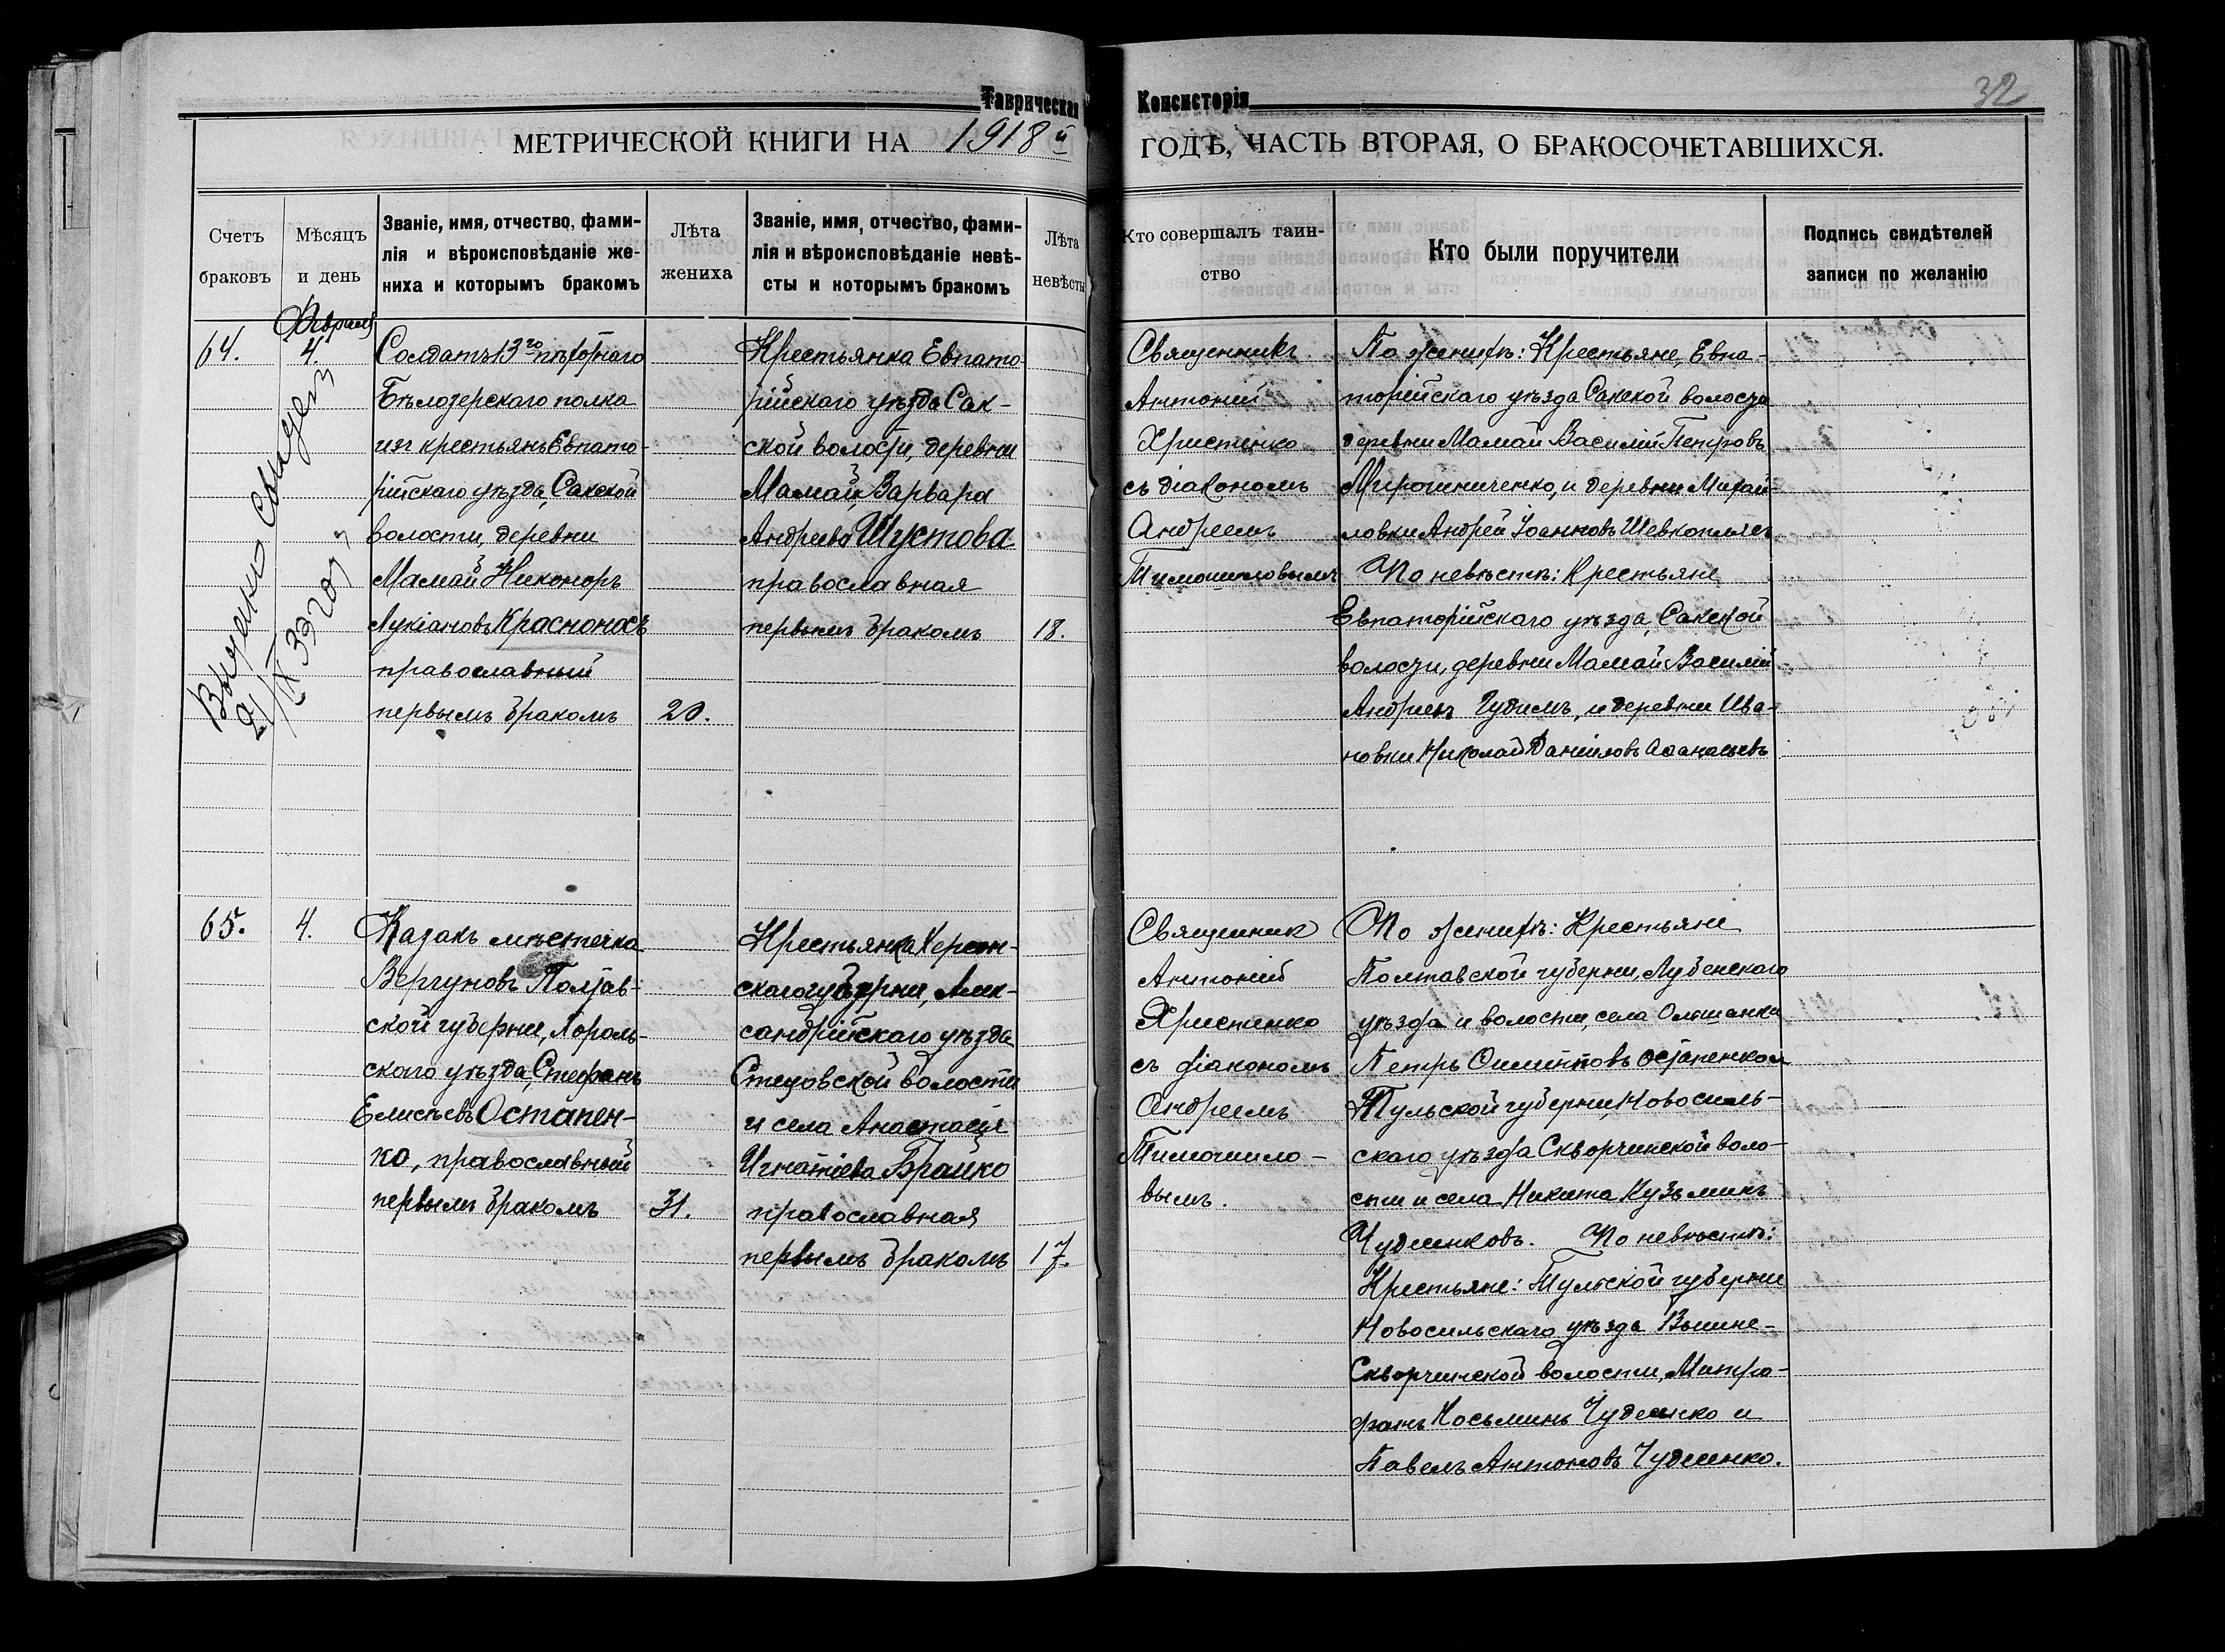 Таврическая Консисторія
32
МЕТРИЧЕСКОЙ КНИГИ НА 1918 й ГОДЪ, ЧАСТЬ ВТОРАЯ, О БРАКОСОЧЕТАВШИХСЯ.
Счетъ
браковъ
Мѣсяцъ
и день
Званіе, имя, отчество, фами-
лія и вѣроисповѣданіе же-
ниха и которымъ бракомъ
Лѣта
жениха
Званіе, имя, отчество, фами-
лія и вѣроисповѣданіе невѣ-
сты и которымъ бракомъ
Лѣта
невѣсты
Кто совершалъ таин-
ство
Кто были поручители
Подпись свидѣтелей
записи по желанію
64.
Февраля
4.
Солдатъ 13го пѣхотнаго
Бѣлозерскаго полка
изъ крестьянъ Евпато-
рійскаго уѣзда, Сакской
волости, деревни
Мамай Никоноръ
Лукіановъ Красноносъ
православный
первымъ бракомъ
20.
Крестьянка Евпато-
рійскаго уѣзда Сак-
ской волости, деревни
Мамай, Варвара
Андреева Шустова
православная
первымъ бракомъ
18.
Священникъ
Антоній
Христенко
съ діакономъ
Андреемъ
Тимошиловымъ
По женихѣ: Крестьяне, Евпа-
торійскаго уѣзда Сакской волости
деревни Мамай Василій Петровъ
Мирошниченко, и деревни Михай-
ловки Андрей Іоанновъ Шевкоплясъ
По невѣстѣ: Крестьяне
Евпаторійскаго уѣзда, Сакской
волости, деревни Мамай Василій
Андреевъ Гудимъ, и деревни Ива-
новки Николай Даніиловъ Аѳанасьевъ
21/IX 33 года
65.
4.
Казакъ мѣстечка
Вергуновъ Полтав-
ской губерніи, Хороль-
скаго уѣзда, Стефанъ
Елисѣевъ Остапен-
ко, православный
первымъ бракомъ
31.
Крестьянка Херсон-
ской губерніи, Алек-
сандрійскаго уѣзда
волости
и села Анастасія
Игнатіева Брайко
православная
первымъ бракомъ
17.
Священник
Антоній
Христенко
съ діакономъ
Андреемъ
Тимошило-
вымъ.
По женихѣ: Крестьяне
Полтавской губерніи, Лубенскаго
уѣзда и волости, села Ольшанки
Петръ Остапенко и
Тульской губерніи, Новосиль-
скаго уѣзда Скворчинской воло-
сти и села Никита Кузьминъ
Чуденковъ. По невѣстѣ:
Крестьяне: Тульской губерніи
Новосильскаго уѣзда Вышне-
Скворчинской волости, Митро-
фанъ Косьминъ Чуденко и
Павелъ Антоновъ Чуденко.